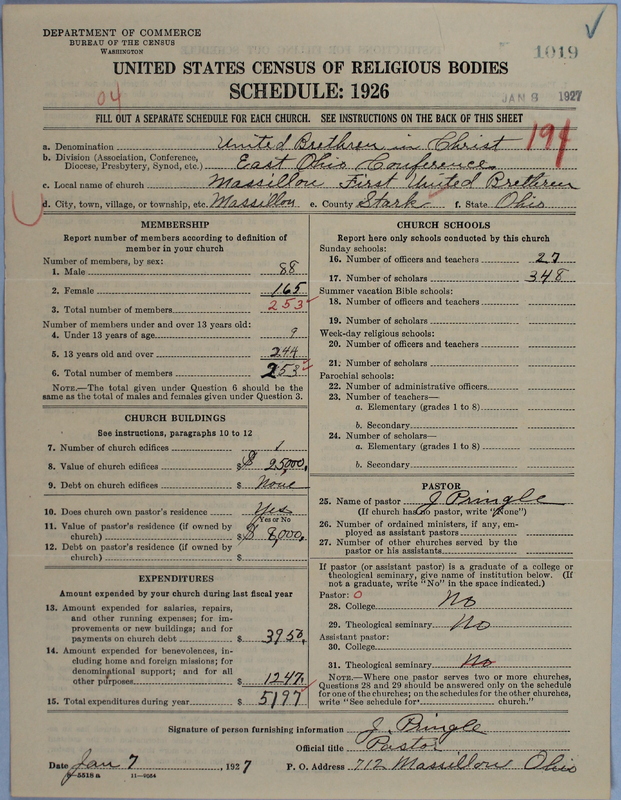 DEPARTMENT OF COMMERCE
BUREAU OF THE CENSUS
WASHINGTON
1019
UNITED STATES CENSUS OF RELIGIOUS BODIES
SCHEDULE: 1926
04
JAN 8 1927
FILL OUT A SEPARATE SCHEDULE FOR EACH CHURCH. SEE INSTRUCTIONS ON THE BACK OF THIS SHEET
191
a. Denomination United Brethren in Christ
b. Division (Association, Conference, Diocese, Presbytery, Synod, etc.) East Ohio Conference
c. Local name of church Massillon First United Brethren
d. City, town, village, or township, etc. Massillon e. County Stark f. State Ohio
MEMBERSHIP
Report number of members according to definition of
member in your church
Number of members, by sex:
1. Male 88
2. Female 165
3. Total number of members 253
Number of members under and over 13 years old:
4. Under 13 years of age 9
5. 13 years old and over 244
6. Total number of members 253
NOTE.—The total given under Question 6 should be
same as the total of males and females given under Question 3.
CHURCH BUILDINGS
See instructions, paragraphs 10 to 12
7. Number of church edifices 1
8. Value of church edifices $ 25,000
9. Debt on church edifices $ None
10. Does church own pastor's residence Yes
Yes or No
11. Value of pastor's residence (if owned by
church) $ 8,000
12. Debt on pastor's residence (if owned by
church) $
EXPENDITURES
Amount expended by your church during last fiscal year
13. Amount expended for salaries, repairs,
and other running expenses; for im-
provements or new buildings; and for
payments on church debt $ 3950
14. Amount expended for benevolences, in-
cluding home and foreign missions; for
denominational support; and for all
other purposes $ 1247
15. Total expenditures during year $ 5197
CHURCH SCHOOLS
Report here only schools conducted by this church
Sunday schools:
16. Number of officers and teachers 27
17. Number of scholars 348
Summer vacation Bible schools:
18. Number of officers and teachers
19. Number of scholars
Week-day religious schools:
20. Number of officers and teachers
21. Number of scholars
Parochial schools:
22. Number of administrative officers
23. Number of teachers—
a. Elementary (grades 1 to 8)
b. Secondary
24. Number of scholars—
a. Elementary (grades 1 to 8)
b. Secondary
PASTOR
25. Name of pastor J Pringle
(If church has no pastor, write "None")
26. Number of ordained ministers, if any, em-
ployed as assistant pastors
27. Number of other churches served by the
pastor or his assistants
If pastor (or assistant pastor) is a graduate of a college or
theological seminary, give name of institution below. (If
not a graduate, write "No" in the space indicated.)
Pastor: 0
28. College No
29. Theological seminary No
Assistant pastor:
30. College
31. Theological seminary No
NOTE.—Where one pastor serves two or more churches,
Questions 28 and 29 should be answered only on the schedule
for one of the churches; on the schedules for the other churches,
write "See schedule for church."
Signature of person furnishing information J. Pringle
Official title Pastor
Date Jan 7, 1927 P. O. Address 712 Massillon Ohio
5518 a 11—9064